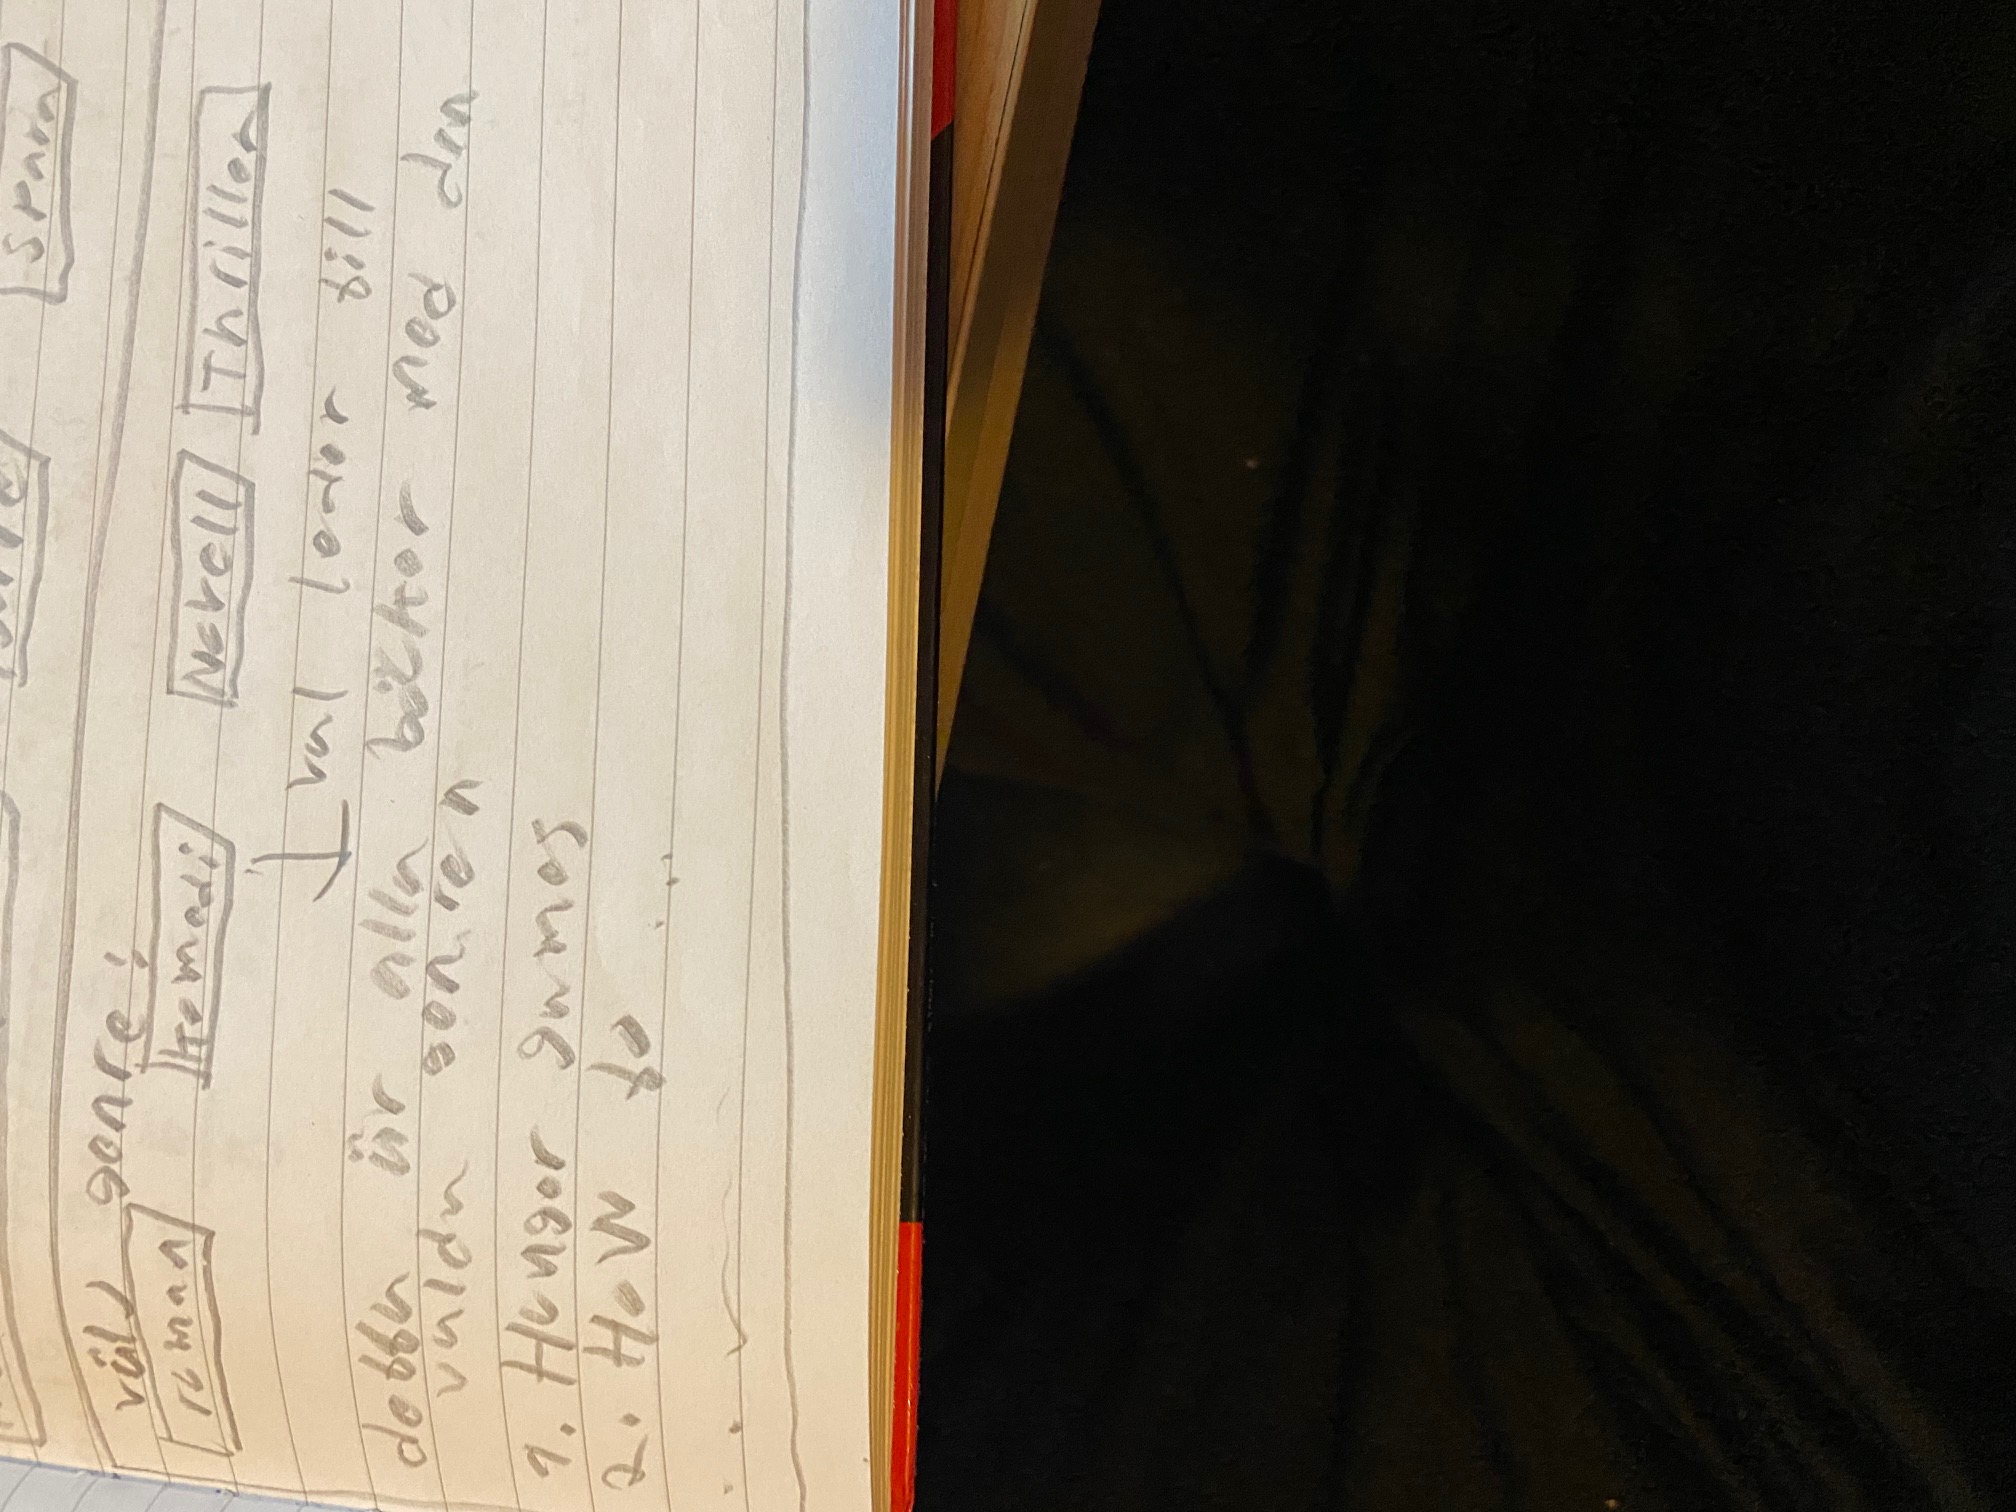 Spara
välj genre:
roman Komedi Novell Thriller
val leder till
detta är alla böcker med den
valda genren
1. Hunger games
2. How to ...